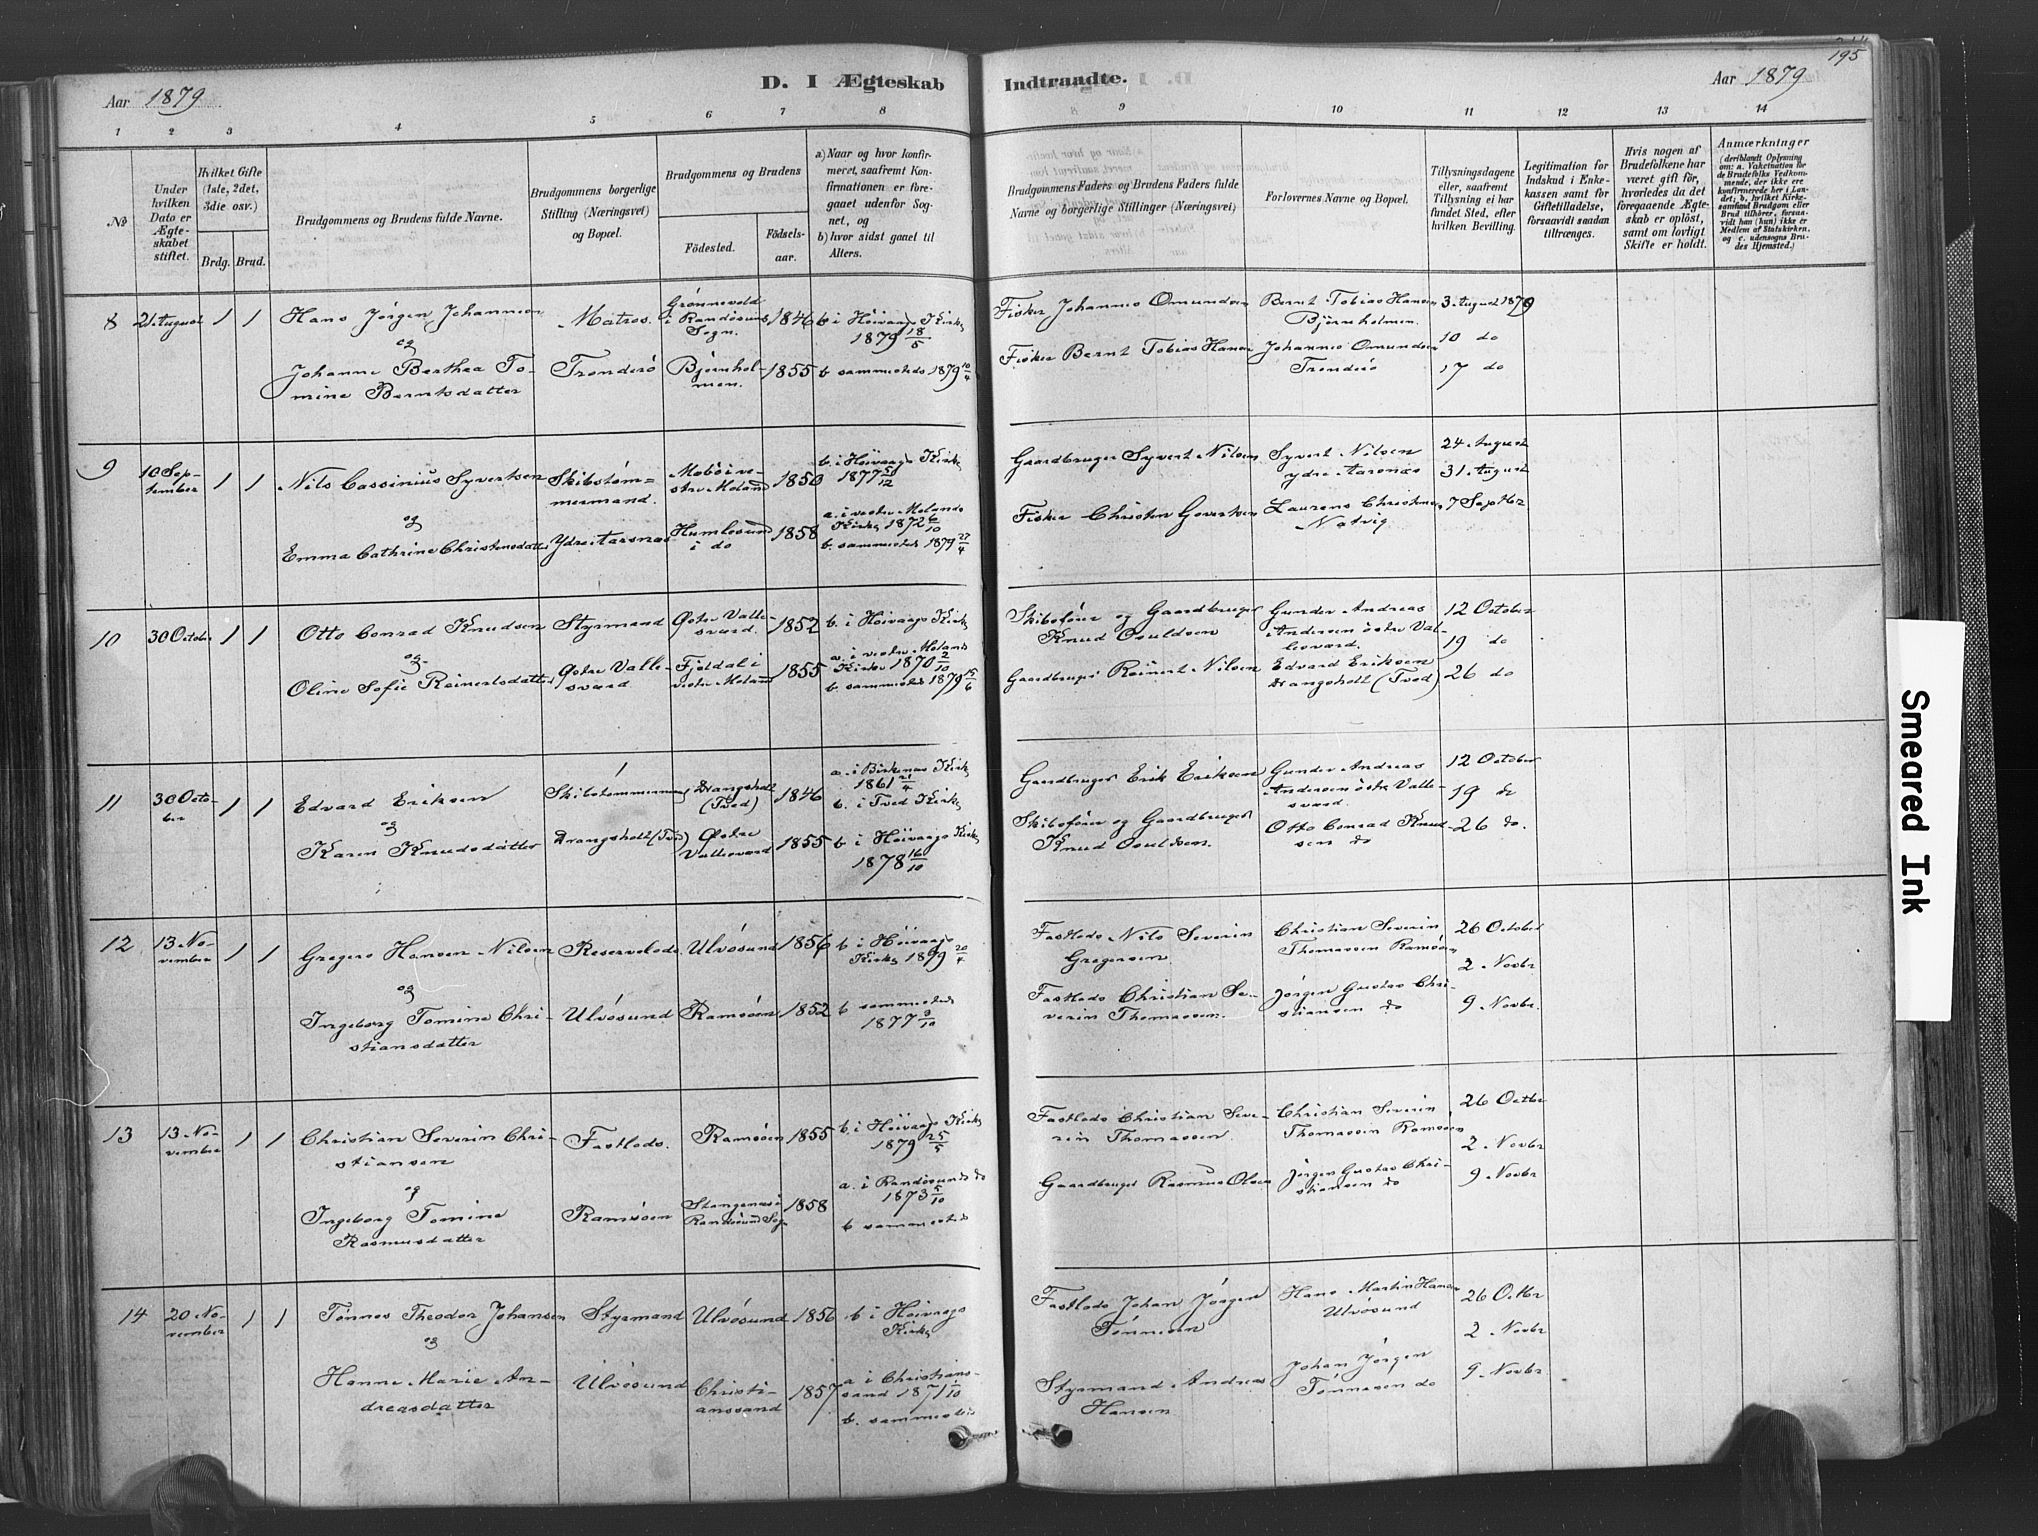 195
Aar 1879
D. I Ægteskab
Indtraadte.
Aar 1879
1 2 3 4 5 6 7 8
8 9 10 11 12 13 14
№
Under hvilken Dato er Ægteskabet stiftet.
Hvilket Gifte (1ste, 2det, 3die osv.)
Brdg. Brud.
Brudgommens og Brudens fulde Navne.
Brudgommens borgerlige Stilling (Næringsvei) og Bopæl.
Brudgommens og Brudens
Fødested.
Fødselsaar.
a) Naar og hvor konfirmeret, saafremt Konfirmationen er foregaaet udenfor Sognet, og
b) hvor sidst gaaet til Alters.
Brudgommens Faders og Brudens Faders fulde Navne og borgerlige Stillinger (Næringsvei)
Forlovernes Navne og Bopæl.
Tillysningsdagene eller, saafremt Tillysning ei har fundet Sted, efter hvilken Bevilling.
Legitimation for Indskud i Enkekassen samt for Giftetilladelse, forsaavidt saadan tiltrænges.
Hvis nogen af Brudefolkene har været gift før, hvorledes da det foregaaende Ægteskab er opløst, samt om lovligt Skifte er holdt.
Anmærkninger
(deriblandt Oplysning om: a. Vakcination for de Brudefolks Vedkommende, der ikke ere konfirmerede her i Landet; b. hvilket Kirkesamfund Brudgom eller Brud tilhører, forsaavidt han (hun) ikke er Medlem af Statskirken, og c. udensogns Brudes Hjemsted.)
8 21 August 1 1
Hans Jørgen Johannesen
og
Johanne Berthea To-
mine Berntsdatter
Matros.
Trondersø
Grønnevold
i Randøsund
Sogn.
1846
Bjørnhol-
men.
1855
b i Høivaags Kirke
1879 18/5
b sammesteds 1879 10/4
Fisker Johannes Omundsen
Fisker Bernt Tobias Hansen
Bernt Tobias Hansen
Bjørnholmen.
Johannes Omundsen
Trondersø
3 August 1879
10 do
17 do
9 10 Sep-
tember 1 1
Nils Cassinius Syvertsen
og
Emma Cathrine Christensdatter
Skibstøm-
mermand.
Ydre Aarsnæs
vestre Moland
1850
Humlesund
i do
1858
b. i Høivaags Kirke
1877 5/12
a. i vestre Molands
Kirke 1872 6/10
b. sammesteds 1879 27/4
Gaardbruger Syvert Nilsen
Fisker Christen Govertsen
Syvert Nilsen
ydre Aarsnæs
Laurens Christensen
Natvig
24 August
31 August
7 Septbr
10 30 October 1 1
Otto Conrad Knudsen
og
Oline Sofie Reinertsdatter
Styrmand
Østre Valle-
sværd
Østre Valle-
sværd.
1852
Fjeldal i
vestre Moland
1855
b. i Høivaags Kirke
a. i vestre Molands
Kirke 1870 2/10
b. sammesteds 1879 15/6
Skibsfører og Gaardbruger
Knud Osuldsen
Gaardbruger Reinert Nilsen
Gunder Andreas
Andersen østre Val-
lesværd.
Edvard Eriksen
Drangsholt (Tved)
12 October
19 do
26 do
11 30 Octo-
ber 1 1
Edvard Eriksen
og
Karen Knudsdatter
Skibstømmermand
Drangsholt (Tved)
Drangsholt
(Tved)
1846
Østre
Vallesværd
1855
a. i Birkenæs Kirke
1861 21/4
b. i Tved Kirke
b i Høivaags Kirke
1878 16/10
Gaardbruger Erik Eriksen
Skibsfører og Gaardbruger
Knud Osuldsen.
Gunder Andreas
Andersen østre Valle-
sværd.
Otto Conrad Knud-
sen do
12 October
19 do
26 do.
12 13 No-
vember 1 1
Gregers Hansen Nilsen
og
Ingeborg Tomine Chri-
stiansdatter
Reservelods.
Ulvøsund
Ulvøsund
1856
Ramsøen
1852
b i Høivaags
Kirke 1879 20/4
b sammesteds
1877 3/10
Fastlods Nils Severin
Gregersen
Fastlods Christian Se-
verin Thomassen.
Christian Severin
Thomassen Ramsøen
Jørgen Gustav Chri-
stiansen do
26 October
2 Novbr
9 Novbr.
13 13 No-
vember 1 1
Christian Severin Chri-
stiansen
og
Ingeborg Tomine
Rasmusdatter
Fastlods.
Ramsøen
Ramsøen
1855
Stangenæs i
Randøsund Sogn
1858
b. i Høivaags Kirke
1879 25/5
a. i Randøsunds do
1873 5/10
b sammesteds
Fastlods Christian Seve-
rin Thomassen
Gaardbruger Rasmus Olsen
Christian Severin
Thomassen Ramsøen
Jørgen Gustav Chri-
stiansen do
26 Octbr
2 Novbr
9 Novbr
14 20 No-
vember 1 1
Tønnes Theodor Johansen
og
Hanne Marie An-
dreasdatter
Styrmand
Ulvøsund
Ulvøsund
1856
Christi-
anssand
1857
b i Høivaags
Kirke
a i Christians-
sand 1871 1/10
b. sammesteds
Fastlods Johan Jørgen
Tønnesen
Styrmand Andreas
Hansen
Hans Martin Hansen
Ulvøsund
Johan Jørgen
Tønnesen do
26 Octbr
2 Novbr
9 Novbr
Smeared Ink